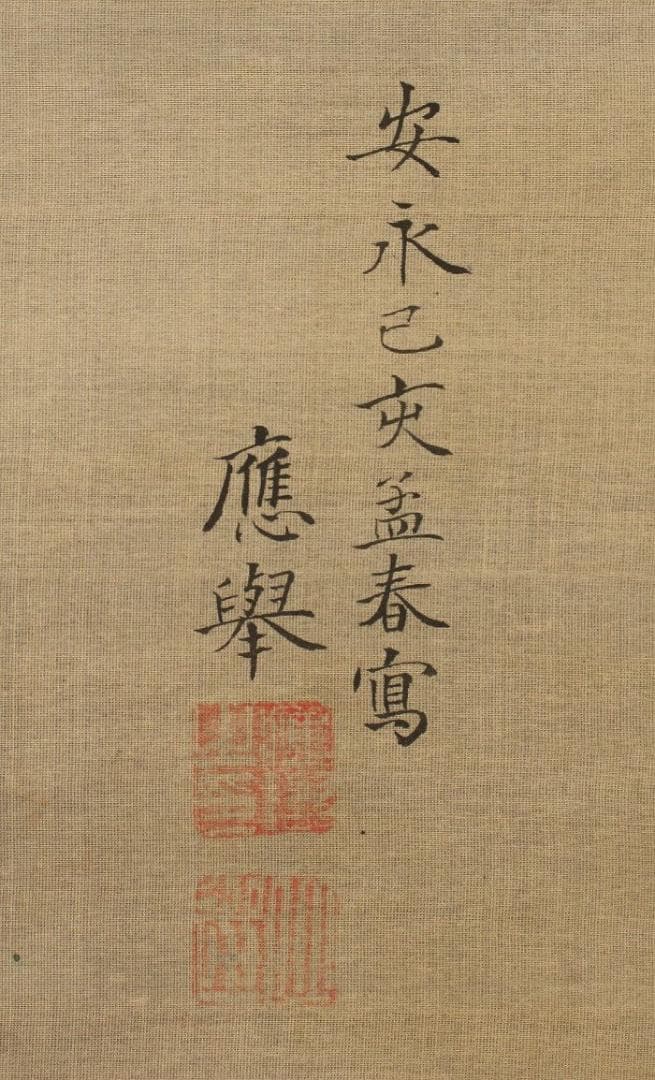 安永己亥孟春寫
應舉